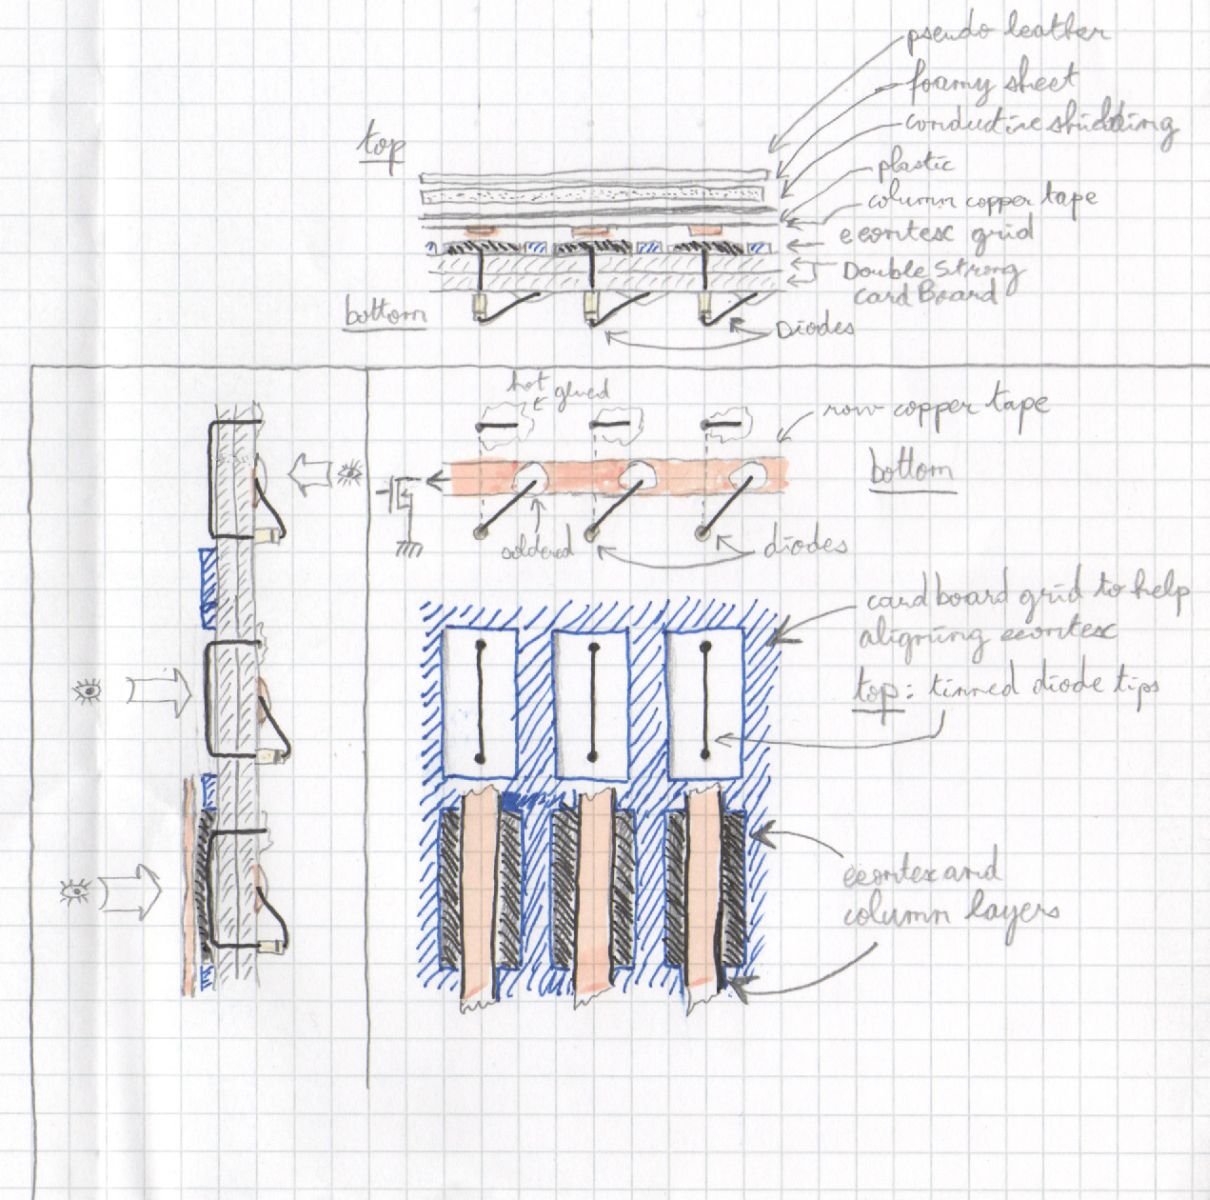 pseudo leather
foamy sheet
conductive shielding
top
plastic
column copper tape
eeontex grid
Double Strong
card Board
bottom
Diodes
hot glued
row copper tape
bottom
soldered
diodes
cardboard grid to help
aligning eeontex
top: tinned diode tips
eeontex and
column layers